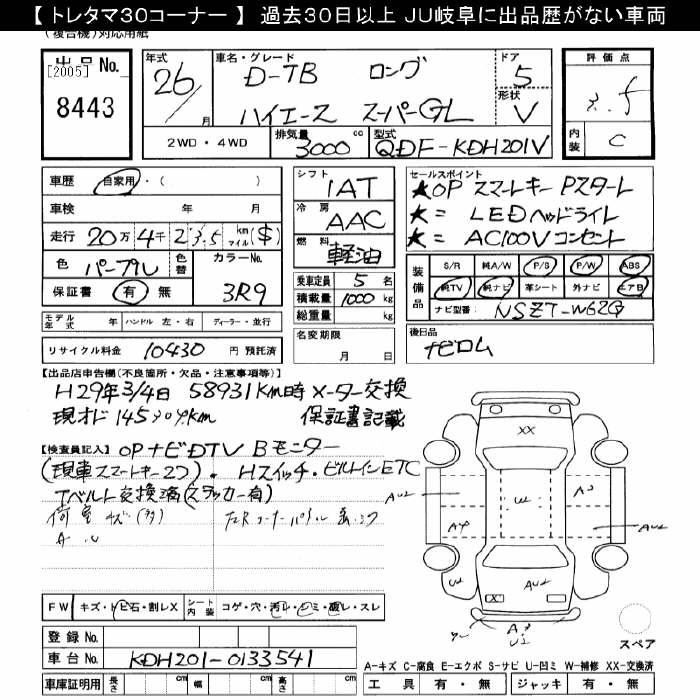 【トレタマ30コーナー】 過去30日以上 JU岐阜に出品歴がない車両
(複合機)対応用紙
出品No. [2005] 8443
年式 26/ 月
車名・グレード D-TB ロング ハイエース スーパーGL
ドア 5
形状 V
評価点 3.5
内装 C
2WD・4WD
排気量 3000 cc
型式 QDF-KDH201V
車歴 自家用・( )
車検 年 月
走行 20万4千23.5 km マイル ($)
色 パープル
色替
カラーNo. 3R9
保証書 有 無
シフト 1AT
冷房 AAC
燃料 軽油
乗車定員 5 名
積載量 1000 kg
総重量 kg
セールスポイント
★OP スマートキー Pスタート
★= LEDヘッドライト
★= AC100Vコンセント
装備品 S/R 純A/W P/S P/W ABS
純TV 純ナビ 革シート 外ナビ エアB
ナビ型番: NSZT-W62G
モデル年式 年 ハンドル 左・右 ディーラー・並行
リサイクル料金 10430 円 預託済
名変期限 月 日
後日品 ナビロム
【出品店申告欄(不良箇所・欠品・注意事項等)】
H29年3/4日 58931Km時 メーター交換
現オド 145309Km 保証書記載
【検査員記入】 OPナビDTV Bモニター
(現車スマートキー2つ)・Hスイッチ・ビルトインETC
Tベルト交換済(ステッカー有)
荷室 キズ(多)
A U
XX
W
AU2
FW キズ・トビ石・割レX シート内装 コゲ・穴・汚レ・シミ・破レ・スレ
登録No.
車台No. KDH201-0133541
車庫証明用 長さ cm 幅 cm 高さ cm
スペア
A-キズ C-腐食 E-エクボ S-サビ U-凹ミ W-補修 XX-交換済
工具 有・無 ジャッキ 有・無